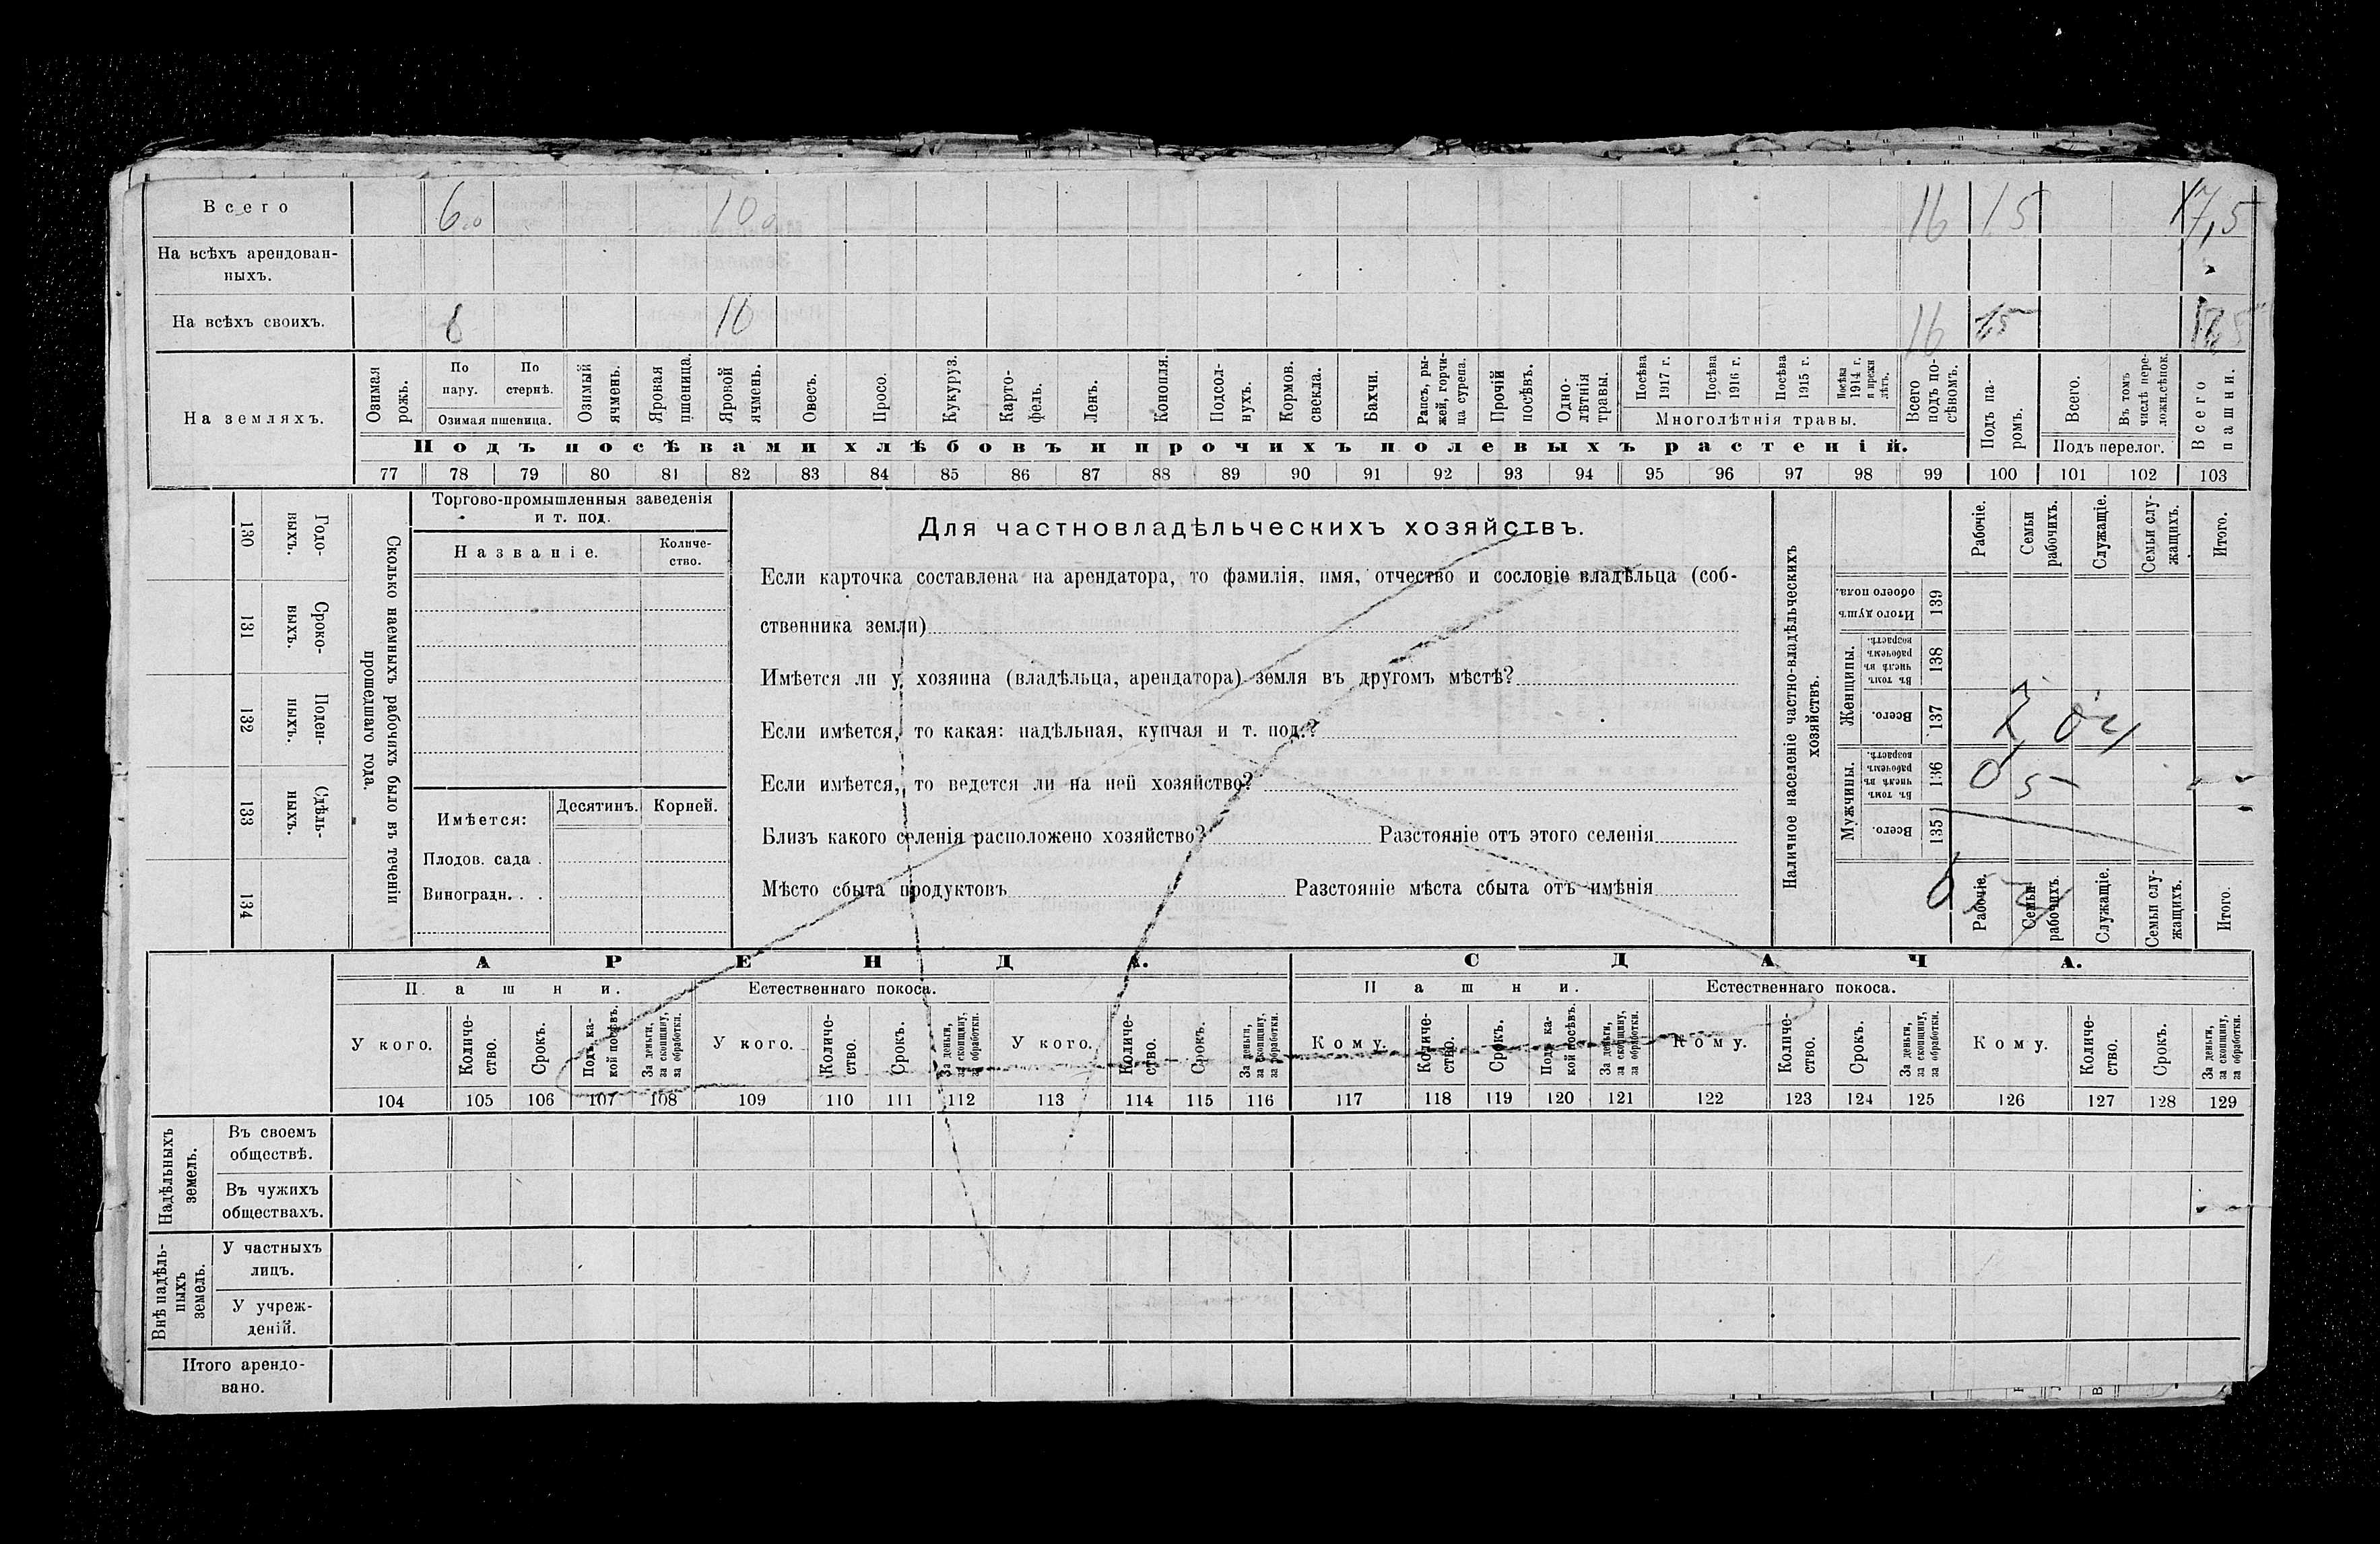 Всего 6,0 10,0 16 15 17,5
На всѣхъ арендован-
ныхъ.
На всѣхъ своихъ. 6 10 16 15
На земляхъ.
Озимая рожь.
По пару.
По стернѣ.
Озимая пшеница.
Озимый ячмень.
Яровая пшеница.
Яровой ячмень.
Овесъ.
Просо.
Кукуруз.
Карто-
фель.
Ленъ.
Конопля.
Подсол-
нухъ.
Кормов. свекла.
Бахчи.
Рапсъ, ры-
жей, горчи-
ца сурепа.
Прочій посѣвъ.
Одно-
лѣтнія травы.
Посѣва 1917 г.
Посѣва 1916 г.
Посѣва 1915 г.
Посѣва 1914 г. и прежн лѣтъ.
Многолѣтнія травы.
Всего подъ по-
сѣвомъ.
Подъ посѣвами хлѣбовъ и прочихъ полевыхъ растеній.
Подъ па-
ромъ.
Всего.
Въ томъ числѣ пере-
ложн.сѣнок.
Подъ перелог.
Всего пашни.
77 78 79 80 81 82 83 84 85 86 87 88 89 90 91 92 93 94 95 96 97 98 99 100 101 102 103
130 Годо-
выхъ.
131 Сроко-
выхъ.
132 Поден-
ныхъ.
133 Сдѣль-
ныхъ.
134
Сколько наемныхъ рабочихъ было въ теченіи
прошедшаго года.
Торгово-промышленныя заведенія
и т. под.
Названіе.
Количе-
ство.
Имѣется:
Десятинъ.
Корней.
Плодов. сада .
Виноградн. . .
Для частновладѣльческихъ хозяйствъ.
Если карточка составлена на арендатора, то фамилія, имя, отчество и сословіе владѣльца (соб-
ственника земли)
Имѣется ли у хозяина (владѣльца, арендатора) земля въ другомъ мѣстѣ?
Если имѣется, то какая: надѣльная, купчая и т. под.?
Если имѣется, то ведется ли на ней хозяйство?
Близъ какого селенія расположено хозяйство? Разстояніе отъ этого селенія
Мѣсто сбыта продуктовъ Разстояніе мѣста сбыта отъ имѣнія
Наличное населеніе частно-владѣльческихъ
хозяйствъ.
Рабочіе.
Семьи рабочихъ.
Служащіе.
Семьи слу-
жащихъ.
Итого.
Итого душъ обоего пола. 139
Женщины.
Въ томъ числѣ въ рабочемъ возрастѣ. 138
Всего. 137
Мужчины.
Въ томъ числѣ въ рабочемъ возрастѣ. 136
Всего. 135
Рабочіе.
Семьи рабочихъ.
Служащіе.
Семьи слу-
жащихъ.
Итого.
АРЕНДА.
СДАЧА.
Пашни.
Естественнаго покоса.
Пашни.
Естественнаго покоса.
У кого.
Количе-
ство.
Срокъ.
Подъ ка-
кой посѣвъ.
За деньги, за скопщину, за обработки.
У кого.
Количе-
ство.
Срокъ.
За деньги, за скопщину, за обработки.
У кого.
Количе-
ство.
Срокъ.
За деньги, за скопщину, за обработки.
Кому.
Количе-
ство.
Срокъ.
Подъ ка-
кой посѣвъ.
За деньги, за скопщину, за обработки.
Кому.
Количе-
ство.
Срокъ.
За деньги, за скопщину, за обработки.
Кому.
Количе-
ство.
Срокъ.
За деньги, за скопщину, за обработки.
104 105 106 107 108 109 110 111 112 113 114 115 116 117 118 119 120 121 122 123 124 125 126 127 128 129
Надѣльныхъ земель.
Въ своемъ
обществѣ.
Въ чужихъ
обществахъ.
Внѣ надѣль-
ныхъ земель.
У частныхъ
лицъ.
У учреж-
деній.
Итого арендо-
вано.